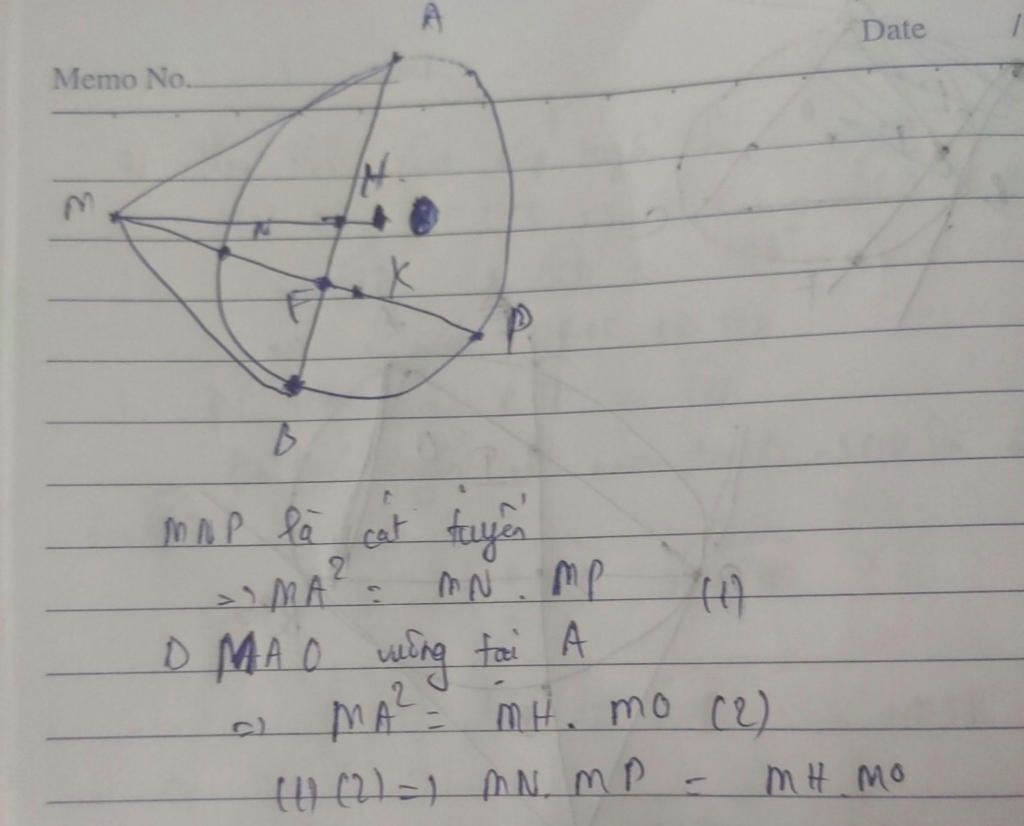 A
Date /
Memo No.
H
M
N
K
F
P
B
MNP là cát tuyến
=> MA² = MN . MP (1)
Δ MAO vuông tại A
=> MA² = MH . MO (2)
(1) (2) => MN . MP = MH . MO